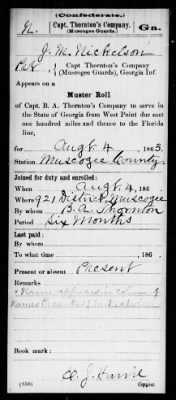 (Confederate.)
N. Capt. Thornton's Company. Ga.
(Muscogee Guards.)
J. M. Nickelson
Pvt, Capt Thornton's Company
(Muscogee Guards), Georgia Inf.
Appears on a
Muster Roll
of Capt. B. A. Thornton's Company to serve in
the State of Georgia from West Point due east
one hundred miles and thence to the Florida
line,
for Augt. 4, 1863.
Station Muscogee County.
Joined for duty and enrolled:
When Augt. 4, 186
Where 921 District Muscogee
By whom B. A. Thornton
Period Six Months
Last paid:
By whom
To what time , 186 .
Present or absent Present
Remarks:
Name appears in column of
Names
Book mark:
(650) Copyist.